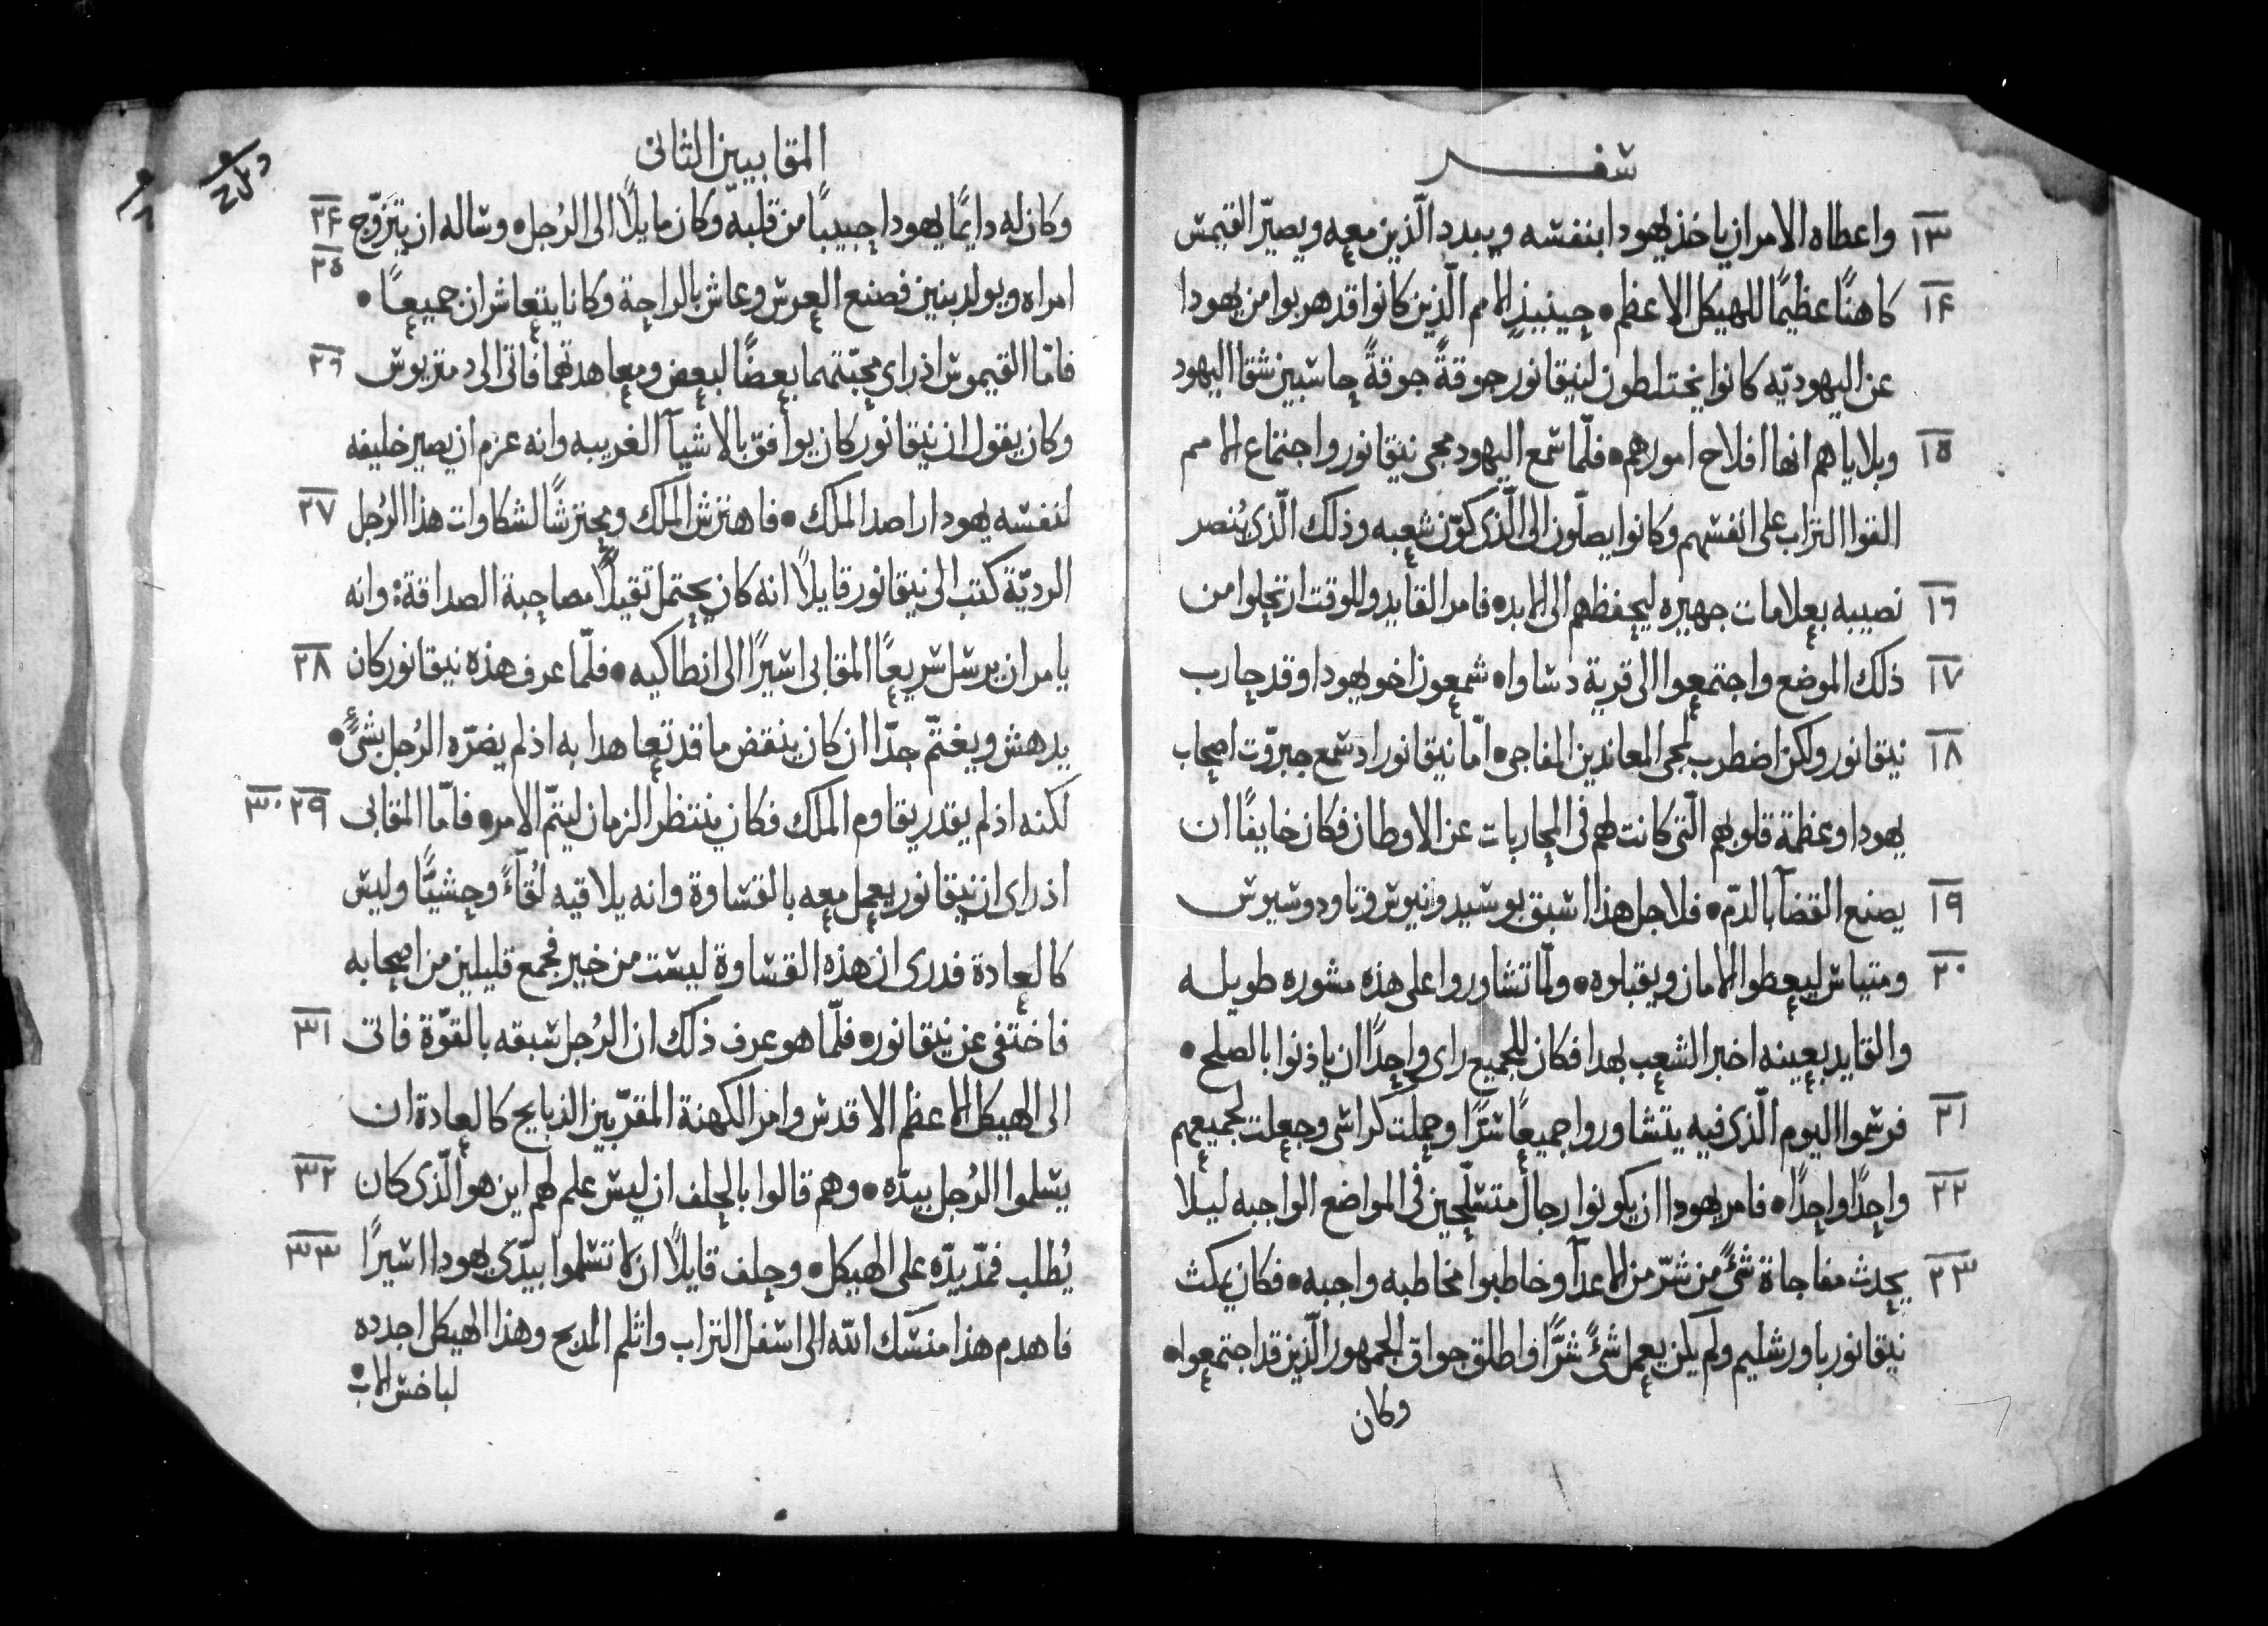 سفر
١٣ واعطاه الامر ان ياخذ يهودا بنفسه ويبدد الّذين معه ويصيّر القيمس
١٤ كاهنًا عظيمًا للهيكل الاعظم • حينيذٍ الامم الّذين كانوا قد هربوا من يهودا
عن اليهوديّه كانوا يختلطون لنيقانور جوقةً جوقةً حاسبين شقا اليهود
١٥ وبلاياهم انها افلاح امورهم • فلمّا سمع اليهود مجى نيقانور واجتماع الامم
القوا التراب على انفسهم وكانوا يصلّون الى الّذى كوّن شعبه وذلك الّذى يُنصر
١٦ نصيبه بعلامات جهيره ليحفظهم الى الابد • فامر القايد وللوقت ارتحلوا من
١٧ ذلك الموضع واجتمعوا الى قرية دساوا • شمعون اخو يهودا وقد حارب
١٨ نيقانور ولكن اضطرب لمجى المعاندين المفاجى • امّا نيقانور اد سمع جبروّت اصحاب
يهودا وعظمة قلوبهم الّتى كانت لهم فى المحاربات عن الاوطان فكان خايفًا ان
١٩ يصنع القضآ بالدّم • فلاجل هذا اسبق بوسيدونيوس وتاودوسيوس
٢٠ ومتياس ليعطوا الامان ويقبلوه • ولمّا تشاوروا على هذه مشوره طويله
والقايد بعينه اخبر الشعب بهدا فكان للجميع راى واحدًا ان ياذنوا بالصلح •
٢١ فرسموا اليوم الّذى فيه يتشاوروا جميعًا سرًّا وحملت كراسى وجعلت لجميعهم
٢٢ واحدًا واحدًا • فامر يهودا ان يكونوا رجال متسلّحين فى المواضع الواجبه ليلا
٢٣ يحدث مفاجاة شىً من شرّ من الاعدآ وخاطبوا مخاطبه واجبه • فكان يمكث
نيقانور باورشليم ولم يكن يعمل شىً شرًّا واطلق جواق الجمهور الّذين قد اجتمعوا •
وكان
المقابيين الثانى
٢٤ ٢٥ وكان له دايمًا يهودا حبيبًا من قلبه وكان مايلًا الى الرُجل • وساله ان يتزوّج
امراه ويولد بنين فصنع العرس وعاش بالراحة وكانا يتعاشران جميعًا •
٢٦ فامّا القيموس اذ راى محبّتهما بعضًا لبعض ومعاهدتهما فاتى الى دمتريوس
وكان يقول ان نيقانور كان يوافق بالاشيآ الغريبه وانه عزم ان يصير خليفه
٢٧ لنفسه يهودا راصد الملك • فاهترش الملك ومحترشًا لشكاوات هذا الرُجل
الرديّة كتب الى نيقانور قايلًا انه كان يحتمل تقيلًا مصاحبة الصداقة وانه
٢٨ يامر ان يرسل سريعًا المقابى اسيرًا الى انطاكيه • فلمّا عرف هذه نيقانور كان
يدهش ويغتمّ جدّا ان كان ينقض ما قد تعاهدا به اذ لم يضرّه الرُجل بشىً •
٢٩ ٣٠ لكنه اذ لم يقدر يقاوم الملك فكان ينتظر الزمان ليتمّ الامر • فامّا المقابى
اذ راى ان نيقانور يعمل معه بالقساوة وانه يلاقيه لُقآءً وحشيًّا وليس
كالعادة فدرى ان هذه القساوة ليست من خير فجمع قليلين من اصحابه
٣١ فاختفى عن نيقانور • فلمّا هو عرف ذلك ان الرُجل سبقه بالقوّة فاتى
الى الهيكل الاعظم الاقدس وامر الكهنة المقرّبين الذبايح كالعادة ان
٣٢ يسلموا الرُجل بيدّه • وهم قالوا بالحلف ان ليس علم لهم اين هو الّذى كان
٣٣ يُطلب فمدّ يدّه على الهيكل • وحلف قايلًا ان لا تسلموا بيدّى يهودا اسيرًا
فاهدم هذا منسك اللّه الى اسفل التراب واثلم المدبح وهذا الهيكل اجدده
لباخس الاب •